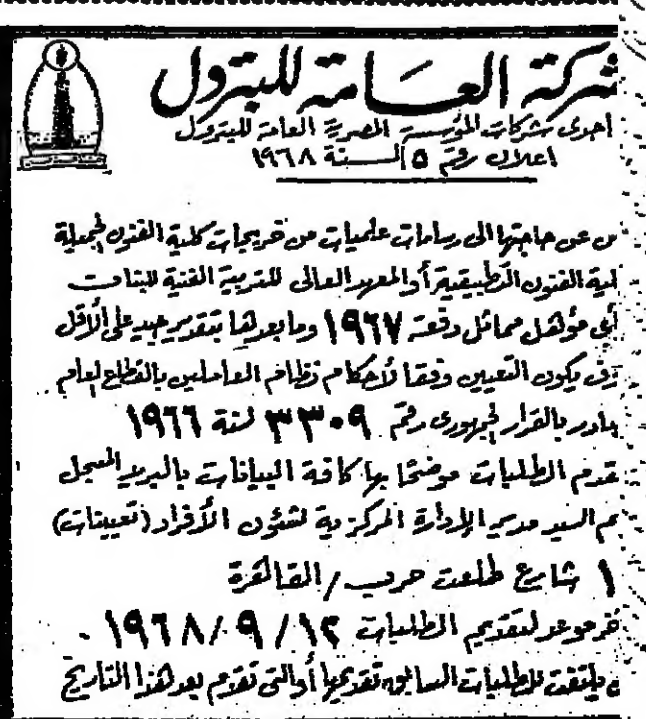 شركة العامة للبترول
احدى شركات المؤسسة المصرية العامة للبترول
اعلان رقم ٥ لسنة ١٩٦٨
عن حاجتها الى رسامات علميات من خريجات كلية الفنون الجميلة
الفنون التطبيقية أو المعهد العالى للتربية الفنية للبنات
أى مؤهل مماثل دفعة ١٩٦٧ وما بعدها بتقدير جيد على الأقل
يكون التعيين وفقا لأحكام نظام العاملين بالقطاع العام
بالقرار الجمهورى رقم ٣٣٠٩ لسنة ١٩٦٦
تقدم الطلبات موضحا بها كافة البيانات بالبريد المسجل
السيد مدير الإدارة المركزية لشئون الأفراد (تعيينات)
١ شارع طلعت حرب / القاهرة
موعد لتقديم الطلبات ١٢ / ٩ / ١٩٦٨ .
يلتفت للطلبات السابق تقديمها أو التى تقدم بعد هذا التاريخ